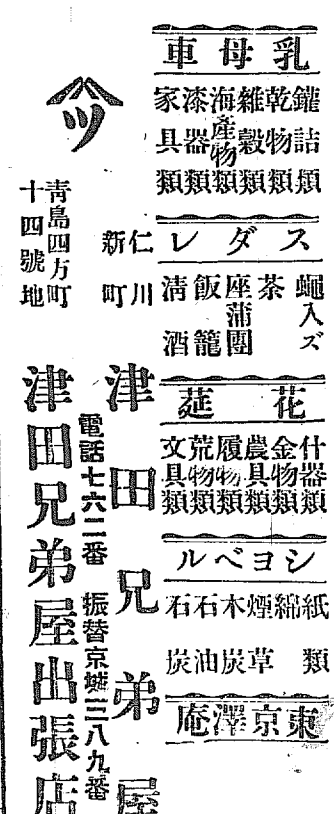 乳母車
鑵詰類
乾物類
雜穀類
海產物類
漆器類
家具類
スダレ
蠅入ズ
茶
座蒲團
飯籠
淸酒
花莚
什器類
金物類
農具類
履物類
荒物類
文具類
シヨベル
紙類
綿
煙草
木炭
石油
石炭
東京澤庵
ツ
仁川
新町
津田兄弟屋
電話七六二番 振替京城三八九番
靑島四方町
十四號地
津田兄弟屋出張店